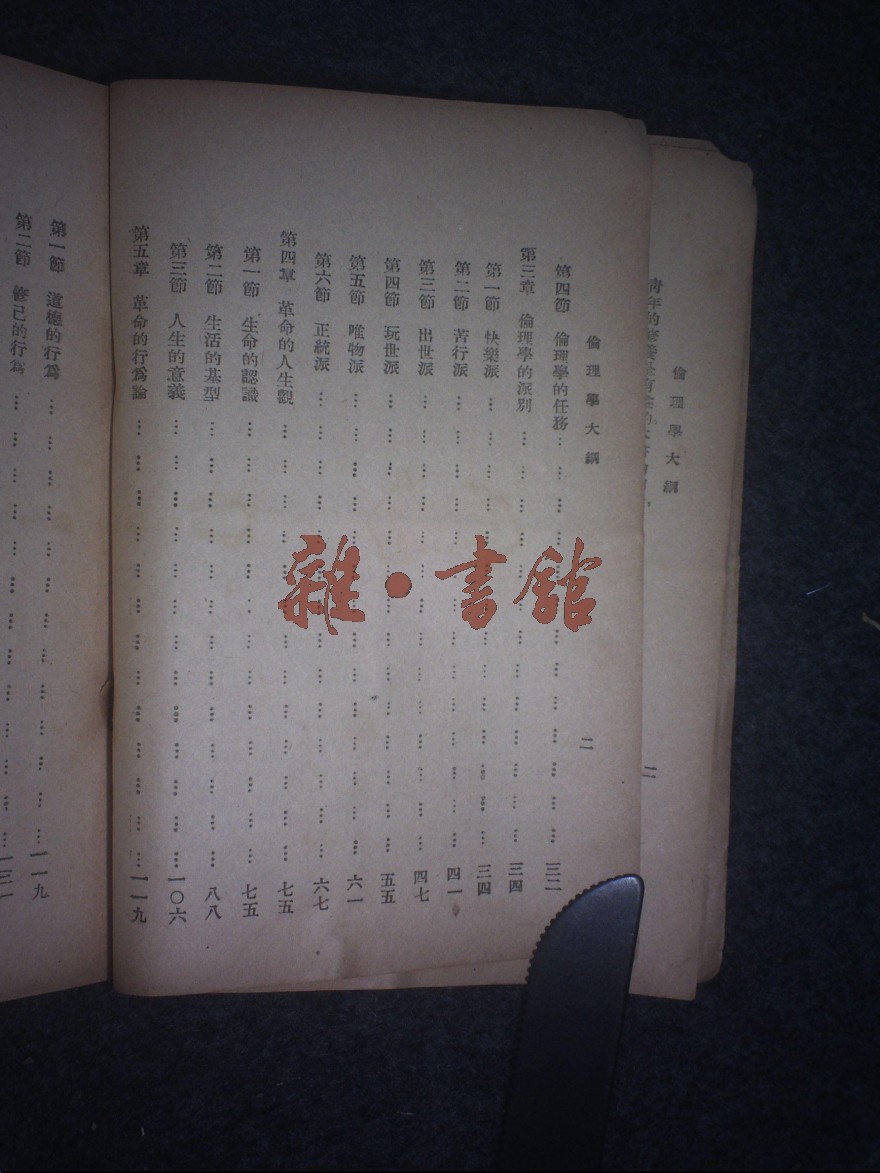 倫理學大綱
二
倫理學大綱
二
第四節 倫理學的任務 三二
第三章 倫理學的派別 三四
第一節 快樂派 三四
第二節 苦行派 四一
第三節 出世派 四七
第四節 玩世派 五五
第五節 唯物派 六一
第六節 正統派 六七
第四章 革命的人生觀 七五
第一節 生命的認識 七五
第二節 生活的基型 八八
第三節 人生的意義 一〇六
第五章 革命的行為論 一一九
第一節 道德的行為 一一九
第二節 修己的行為
雜·書館